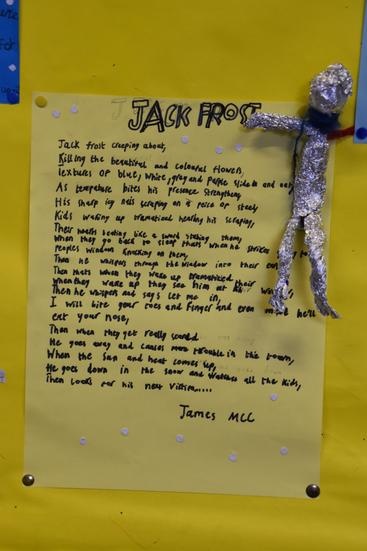 JACK FROST
Jack frost creeping about,
Killing the beautiful and colourful flowers,
textures of blue, white, gray and purple
As tempature bites his presence strengthens
His sharp icy nails scraping on a peice of steel
Kids waking up tramatised hearing his scraping,
Their hearts beating like a sword stabing them,
When they go back to sleep thats when he strikes
peoples window knocking on them,
Then he whispers through the window into their
Then thats when they wake up tramatized
When they wake up they see him at
Then he whispers and says let me in,
I will bite your toes and finger and even
eat your nose,
Then when they get really scared
He goes away and causes more trouble in the town,
When the sun and heat comes up,
He goes down in the snow and watches all the kids,
Then looks for his next victim.....
James MCC
for